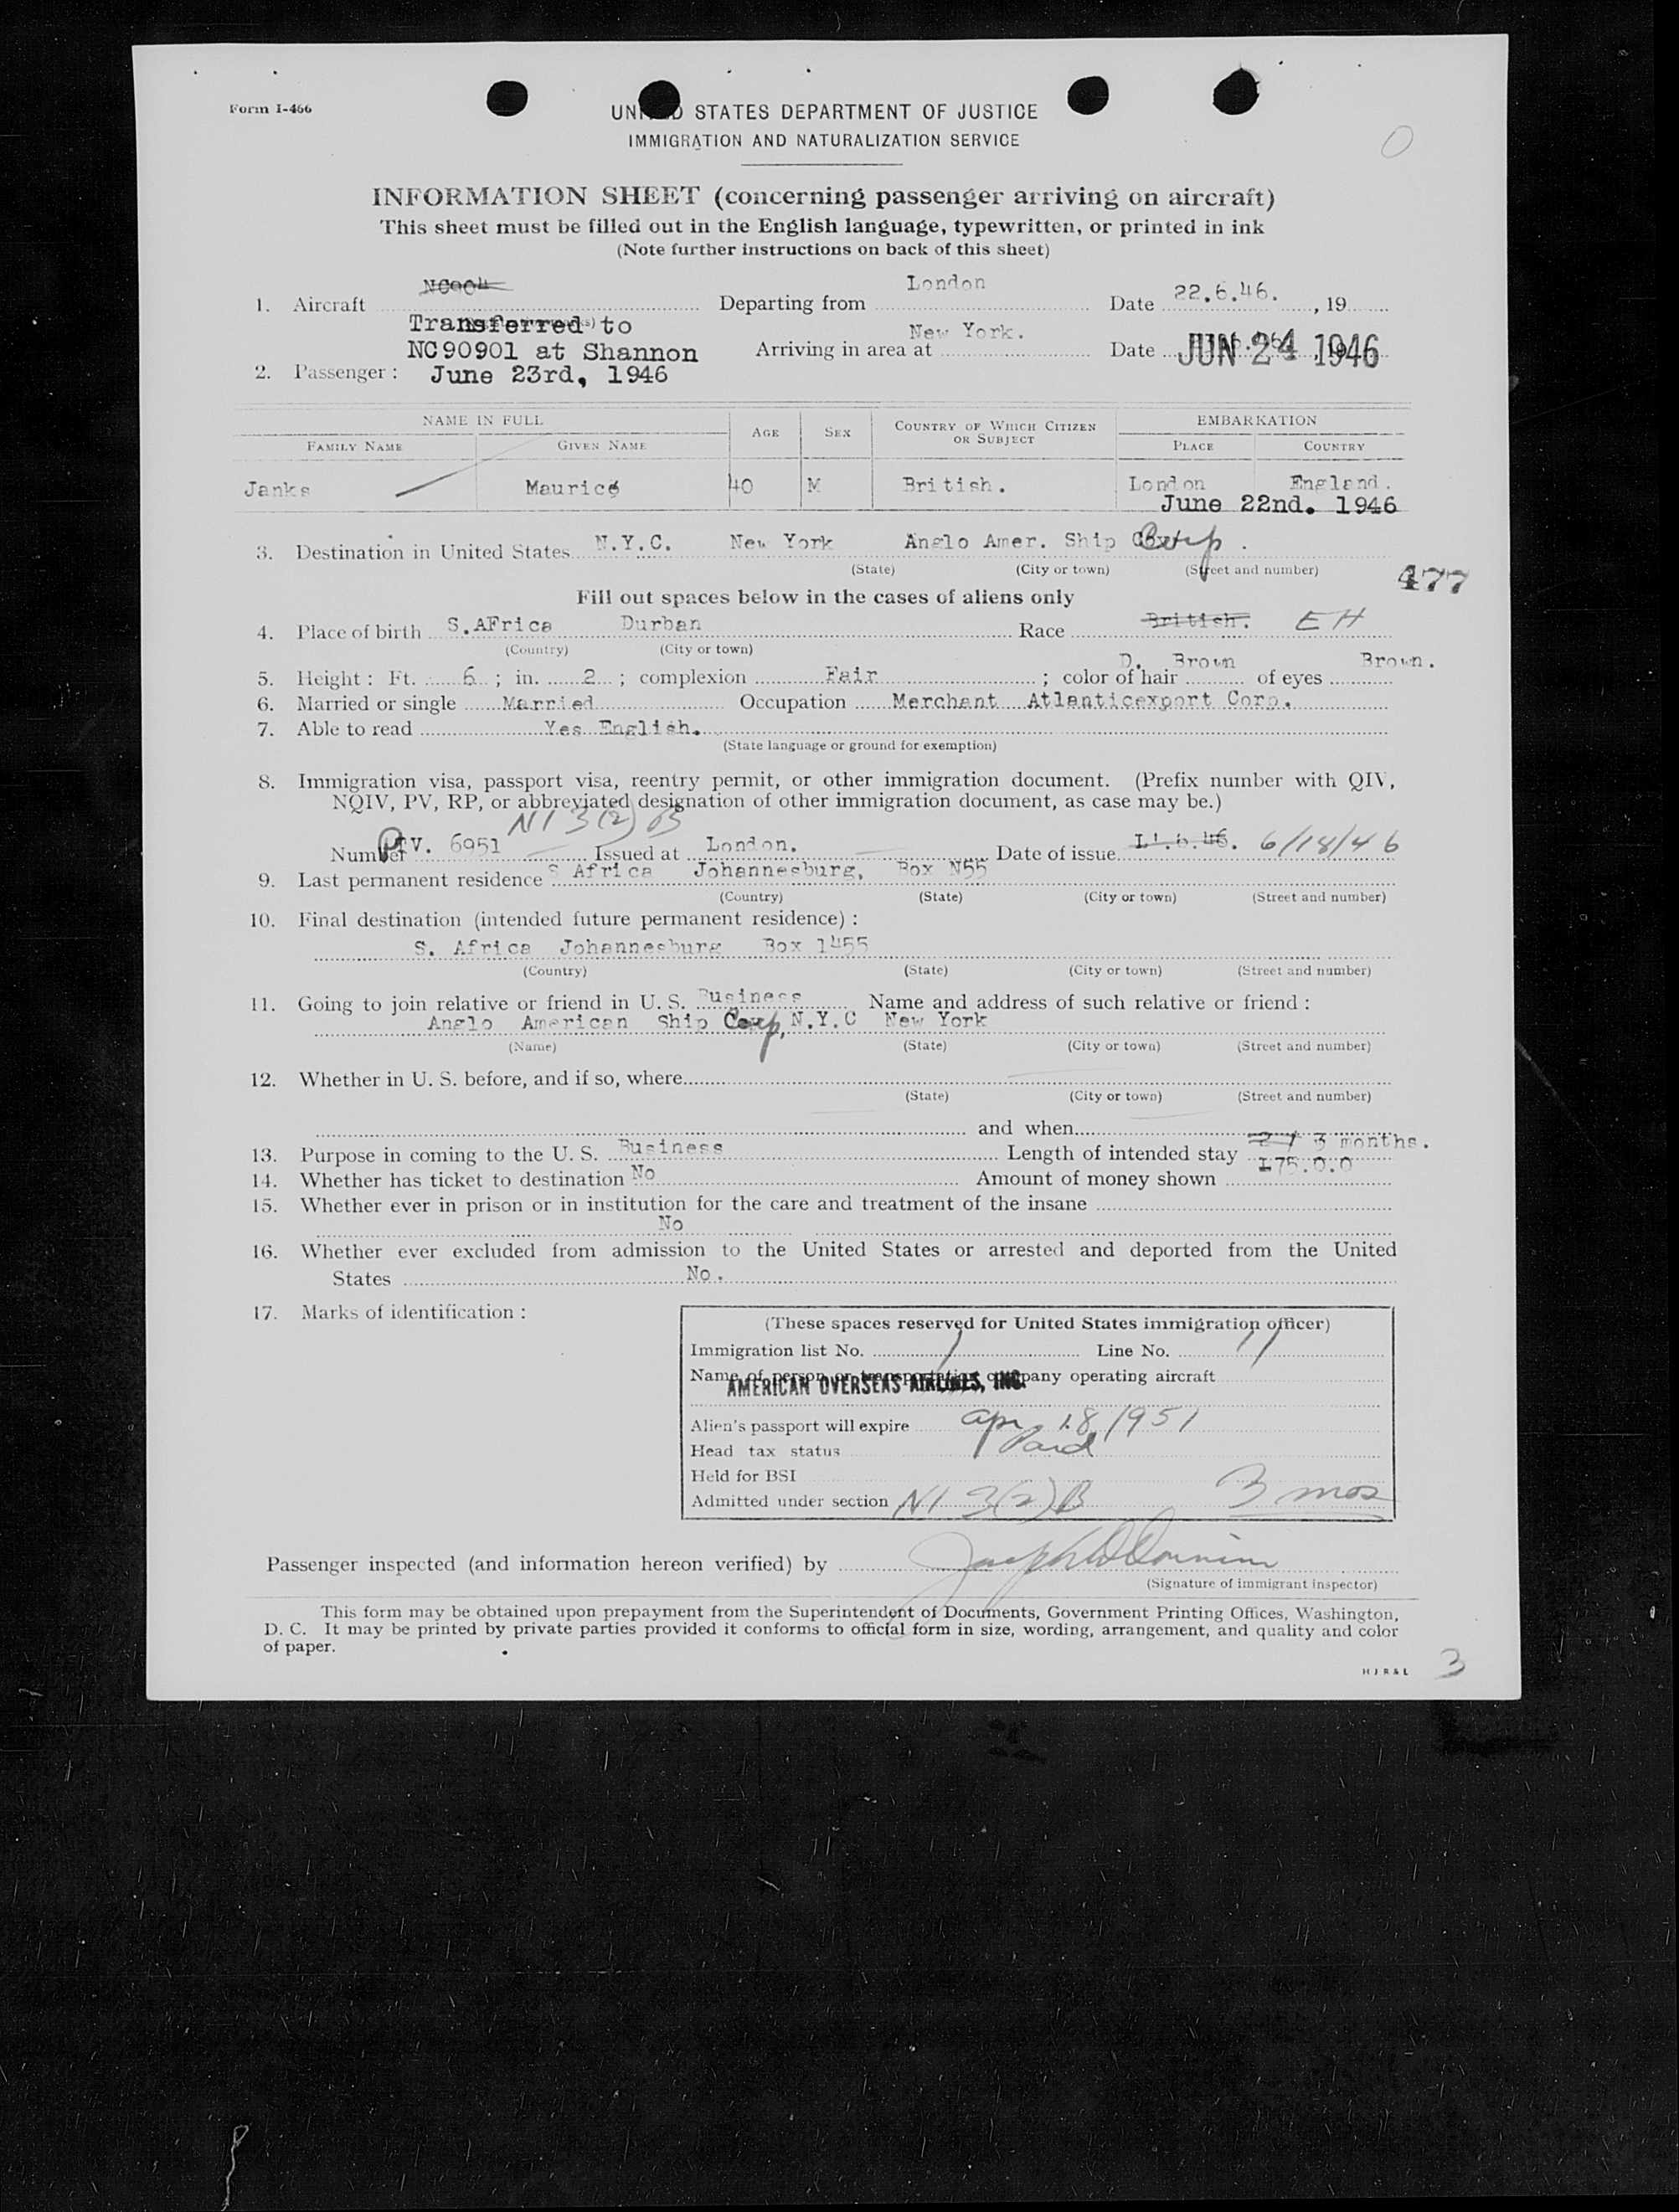 Form I-466
UNITED STATES DEPARTMENT OF JUSTICE
IMMIGRATION AND NATURALIZATION SERVICE
INFORMATION SHEET (concerning passenger arriving on aircraft)
This sheet must be filled out in the English language, typewritten, or printed in ink
(Note further instructions on back of this sheet)
1. Aircraft Departing from London Date 22.6.46. , 19
Transferred to
NC90901 at Shannon Arriving in area at New York. Date JUN 24 1946
2. Passenger : June 23rd, 1946
NAME IN FULL AGE SEX COUNTRY OF WHICH CITIZEN OR SUBJECT EMBARKATION
FAMILY NAME GIVEN NAME PLACE COUNTRY
Janks Maurice 40 M British. London England.
June 22nd. 1946
3. Destination in United States N.Y.C. New York Anglo Amer. Ship Corp.
(State) (City or town) (Street and number)
477
Fill out spaces below in the cases of aliens only
4. Place of birth S.AFrica Durban Race British. EH
(Country) (City or town)
5. Height : Ft. 6 ; in. 2 ; complexion Fair ; color of hair D. Brown of eyes Brown.
6. Married or single Married Occupation Merchant Atlanticexport Corp.
7. Able to read Yes English.
(State language or ground for exemption)
8. Immigration visa, passport visa, reentry permit, or other immigration document. (Prefix number with QIV,
NQIV, PV, RP, or abbreviated designation of other immigration document, as case may be.)
NI 3(2) B
Number PV. 6951 Issued at London. Date of issue 6/18/46
9. Last permanent residence S Africa Johannesburg, Box N55
(Country) (State) (City or town) (Street and number)
10. Final destination (intended future permanent residence) :
S. Africa Johannesburg Box 1455
(Country) (State) (City or town) (Street and number)
11. Going to join relative or friend in U. S. Business Name and address of such relative or friend :
Anglo American Ship Corp, N.Y.C New York
(Name) (State) (City or town) (Street and number)
12. Whether in U. S. before, and if so, where
(State) (City or town) (Street and number)
and when
13. Purpose in coming to the U. S. Business Length of intended stay 3 months.
14. Whether has ticket to destination No Amount of money shown £75.0.0
15. Whether ever in prison or in institution for the care and treatment of the insane
No
16. Whether ever excluded from admission to the United States or arrested and deported from the United
States No.
17. Marks of identification :
(These spaces reserved for United States immigration officer)
Immigration list No. 1 Line No. 11
Name of person or transportation company operating aircraft
AMERICAN OVERSEAS AIRLINES, INC.
Alien's passport will expire Apr 18, 1951
Head tax status Paid
Held for BSI
Admitted under section NI 3(2) B 3 mos
Passenger inspected (and information hereon verified) by
(Signature of immigrant inspector)
This form may be obtained upon prepayment from the Superintendent of Documents, Government Printing Offices, Washington,
D. C. It may be printed by private parties provided it conforms to official form in size, wording, arrangement, and quality and color
of paper.
H J R & L 3